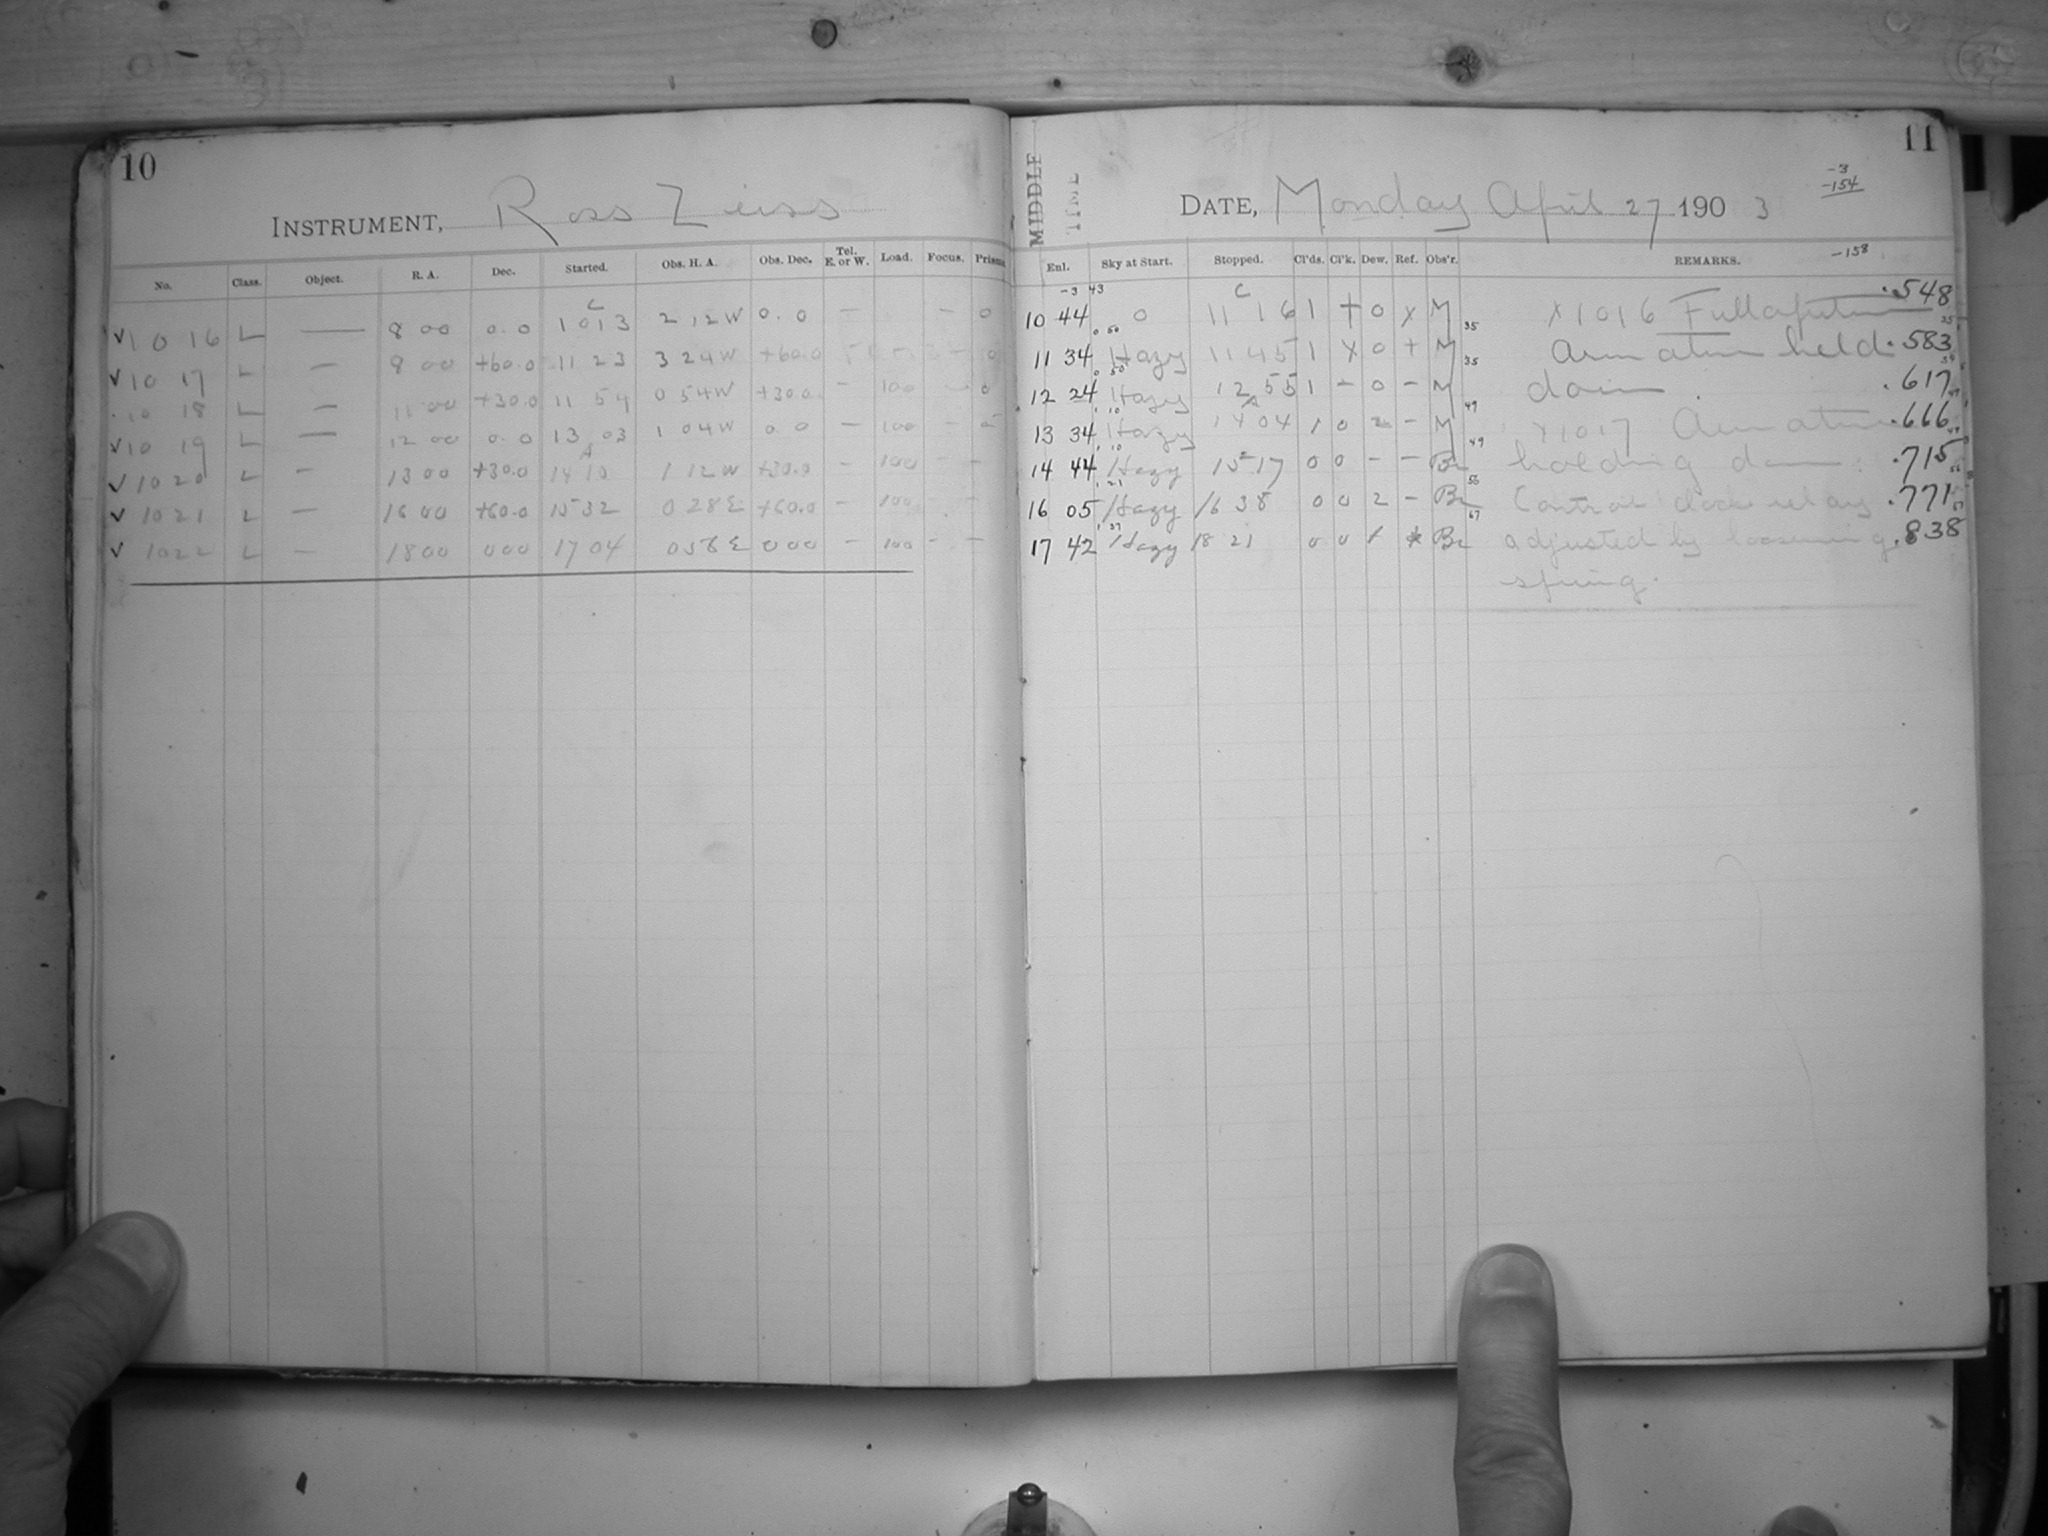 10
INSTRUMENT, Ross Zeiss
No. Class. Object. R. A. Dec. Started. Obs. H. A. Obs. Dec. Tel. E. or W. Load. Focus. Prism
C
√1016 L — 8 00 0.0 1013 2 12W 0.0 — — 0
√1017 L — 8 00 +60.0 11 23 3 24W +60.0 — 0
1018 L — 11 00 +30.0 11 54 0 54W +30.0 — 100 — 0
√1019 L — 12 00 0.0 13 03 1 04W 0 0 — 100 —
√1020 L — 13 00 +30.0 14 10 1 12W +30.0 — 100 — —
√1021 L — 16 00 +60.0 15 32 0 28E +60.0 — 100 — —
√1022 L — 18 00 000 17 04 056E 000 — 100 — —
11
MIDDLE
TIME
DATE, Monday April 27 1903
-3
-154
-158
Enl. Sky at Start. Stopped. Cl'ds. Cl'k. Dew. Ref. Obs'r. REMARKS.
-3 43 C
10 44 0 11 16 1 + 0 x M x1016 Full aperture .548
11 34 Hazy 11 45 1 x 0 + M 35 Armature held .583
12 24 Hazy 12 55 1 – 0 – M 35 down .617
13 34 Hazy 14 04 1 0 2 – M 49 x1017 Armature .666
14 44 Hazy 15 17 0 0 – – Br 49 holding down. .715
16 05 Hazy 16 38 0 0 2 – Br 56 Control clock relay .771
17 42 Hazy 18 21 0 0 * Br 67 adjusted by loosening .838
spring.